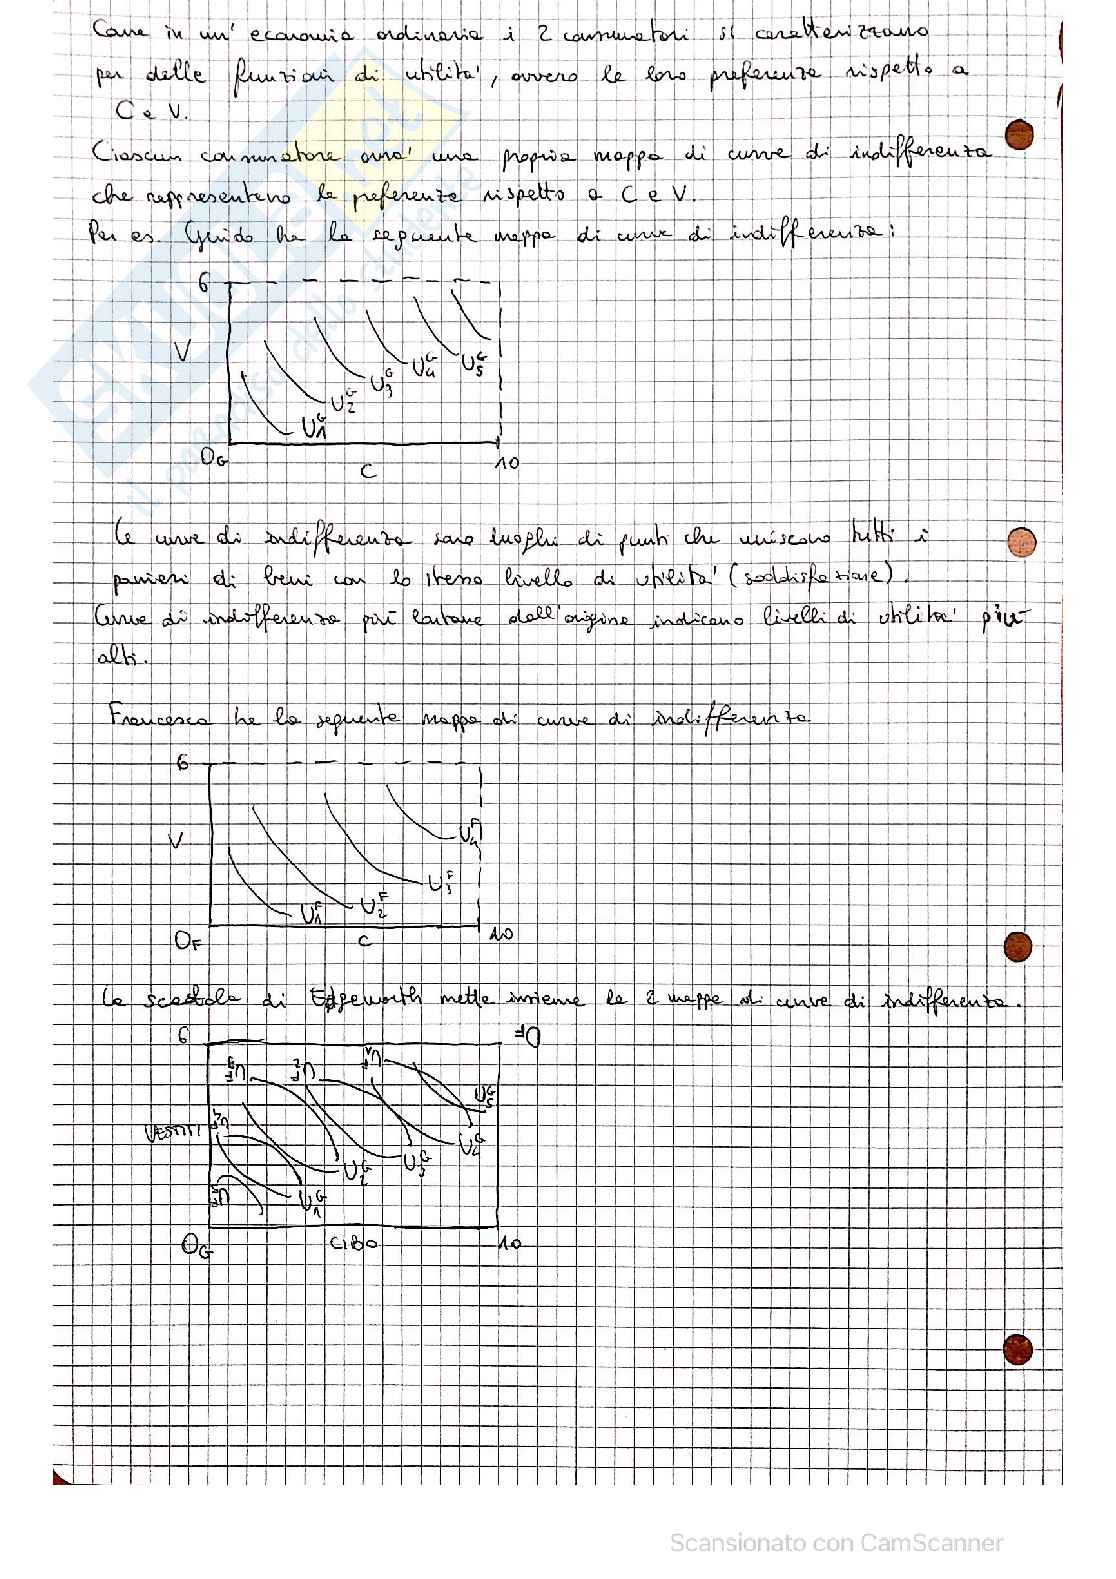 Come in un' economia ordinaria i 2 consumatori si caratterizzano
per delle funzioni di utilità, ovvero le loro preferenze rispetto a
C e V.
Ciascun consumatore avrà una propria mappa di curve di indifferenza
che rappresentano le preferenze rispetto a C e V.
Per es. Guido ha la seguente mappa di curve di indifferenza:
6
V
U1^G U2^G U3^G U4^G U5^G
OG C 10
Le curve di indifferenza sono luoghi di punti che uniscono tutti i
panieri di beni con lo stesso livello di utilità (soddisfazione).
Curve di indifferenza più lontane dall'origine indicano livelli di utilità più
alti.
Francesca ha la seguente mappa di curve di indifferenza
6
V
U1^F U2^F U3^F U4^F
OF C 10
La scatola di Edgeworth mette insieme le 2 mappe di curve di indifferenza.
6 OF
U3^F U2^F U1^F
VESTITI U4^F
U1^G U2^G U3^G U4^G U5^G
OG CIBO 10
Scansionato con CamScanner